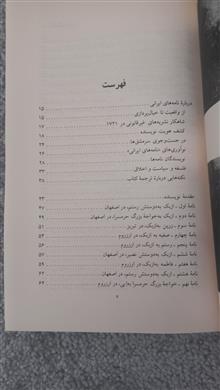 فهرست
دربارهٔ نامه‌های ایرانی ۱۵
از واقعیت تا خیال‌پردازی ۱۵
شاهکار نشریه‌های غیرقانونی در ۱۷۲۱ ۱۷
کشف هویت نویسنده ۱۸
در جست‌وجوی سرمشق‌ها
نوآوری‌های «نامه‌های ایرانی» ۲۴
نویسندگان نامه‌ها ۲۸
فلسفه و سیاست و اخلاق
نکته‌هایی دربارهٔ ترجمهٔ کتاب ۳۸
مقدمهٔ نویسنده ۴۳
نامهٔ اول ، ازبک به‌دوستش رستم، در اصفهان
نامهٔ دوم ، ازبک به‌خواجهٔ بزرگ حرمسرا، در اصفهان
نامهٔ سوم ، زرین به‌ازبک، در تبریز
نامهٔ چهارم ، صفیه به ازبک، در ارزروم
نامهٔ پنجم ، رستم به ازبک، در ارزروم
نامهٔ ششم ، ازبک به‌دوستش نصیر، در اصفهان
نامهٔ هفتم ، فاطمه به‌ازبک، در ارزروم
نامهٔ هشتم ، ازبک به‌دوستش رستم، در اصفهان
نامهٔ نهم ، خواجهٔ بزرگ حرمسرا به‌ابی، در ارزروم ۶۴
۷